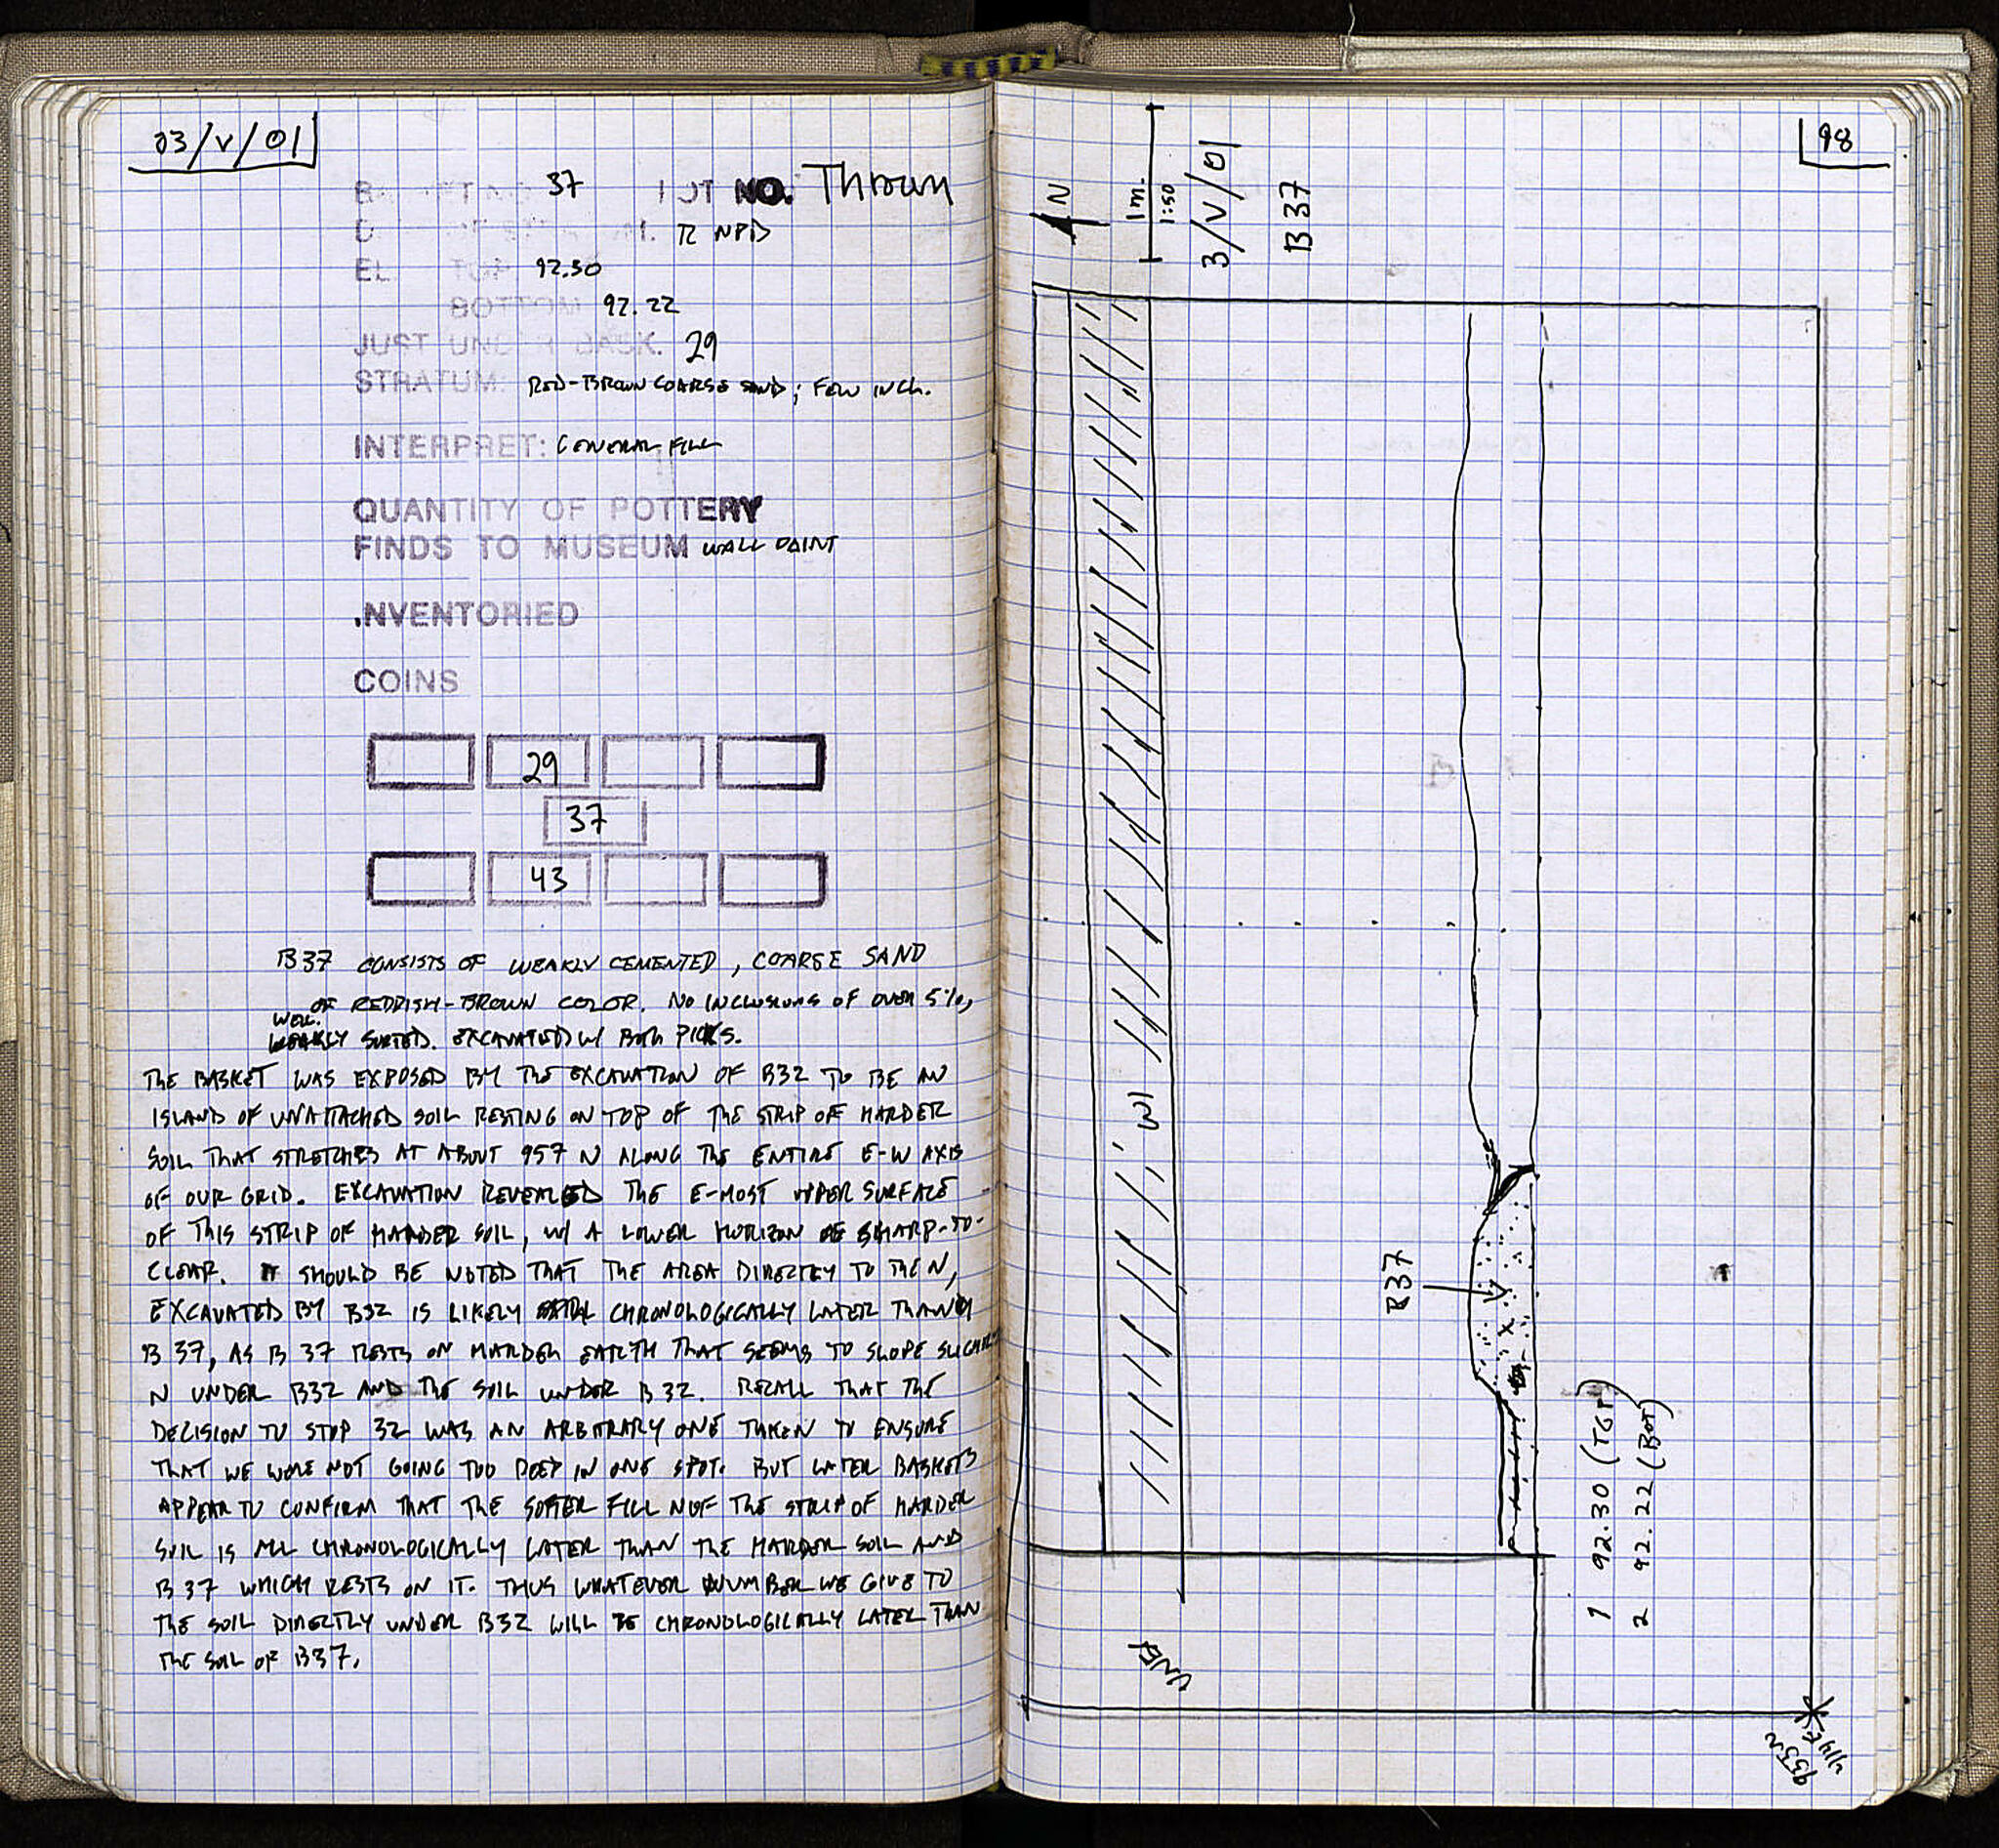 03/V/01
BASKET NO. 37 LOT NO. Thrown
R NPD
EL. TOP 92.30
BOTTOM 92.22
JUST UNDER BASK. 29
STRATUM: RED-BROWN COARSE SAND; FEW INCL.
INTERPRET: GENERAL FILL
QUANTITY OF POTTERY
FINDS TO MUSEUM WALL PAINT
.NVENTORIED
COINS
29
37
43
B37 CONSISTS OF WEAKLY CEMENTED, COARSE SAND
OF REDDISH-BROWN COLOR. NO INCLUSIONS OF OVER 5%,
WELL
WEAKLY SORTED. EXCAVATED W/ BOTH PICKS.
THE BASKET WAS EXPOSED BY THE EXCAVATION OF B32 TO BE AN
ISLAND OF UNATTACHED SOIL RESTING ON TOP OF THE STRIP OF HARDER
SOIL THAT STRETCHES AT ABOUT 957 N ALONG THE ENTIRE E-W AXIS
OF OUR GRID. EXCAVATION REVEALED THE E-MOST UPPER SURFACE
OF THIS STRIP OF HARDER SOIL, W/ A LOWER HORIZON OF SHARP-TO-
CLEAR. IT SHOULD BE NOTED THAT THE AREA DIRECTLY TO THE N,
EXCAVATED BY B32 IS LIKELY CHRONOLOGICALLY LATER THAN
B 37, AS B 37 RESTS ON HARDER EARTH THAT SEEMS TO SLOPE SLIGHTLY
N UNDER B32 AND THE SOIL UNDER B 32. RECALL THAT THE
DECISION TO STOP 32 WAS AN ARBITRARY ONE TAKEN TO ENSURE
THAT WE WERE NOT GOING TOO DEEP IN ONE SPOT. BUT LATER BASKETS
APPEAR TO CONFIRM THAT THE SOFTER FILL N OF THE STRIP OF HARDER
SOIL IS ALL CHRONOLOGICALLY LATER THAN THE HARDER SOIL AND
B 37 WHICH RESTS ON IT. THUS WHATEVER NUMBER WE GIVE TO
THE SOIL DIRECTLY UNDER B32 WILL BE CHRONOLOGICALLY LATER THAN
THE SOIL OF B37.
98
N
1m.
1:50
3/V/01
B37
W1
B37
1 92.30 (TOP)
2 92.22 (BOT)
UNEX